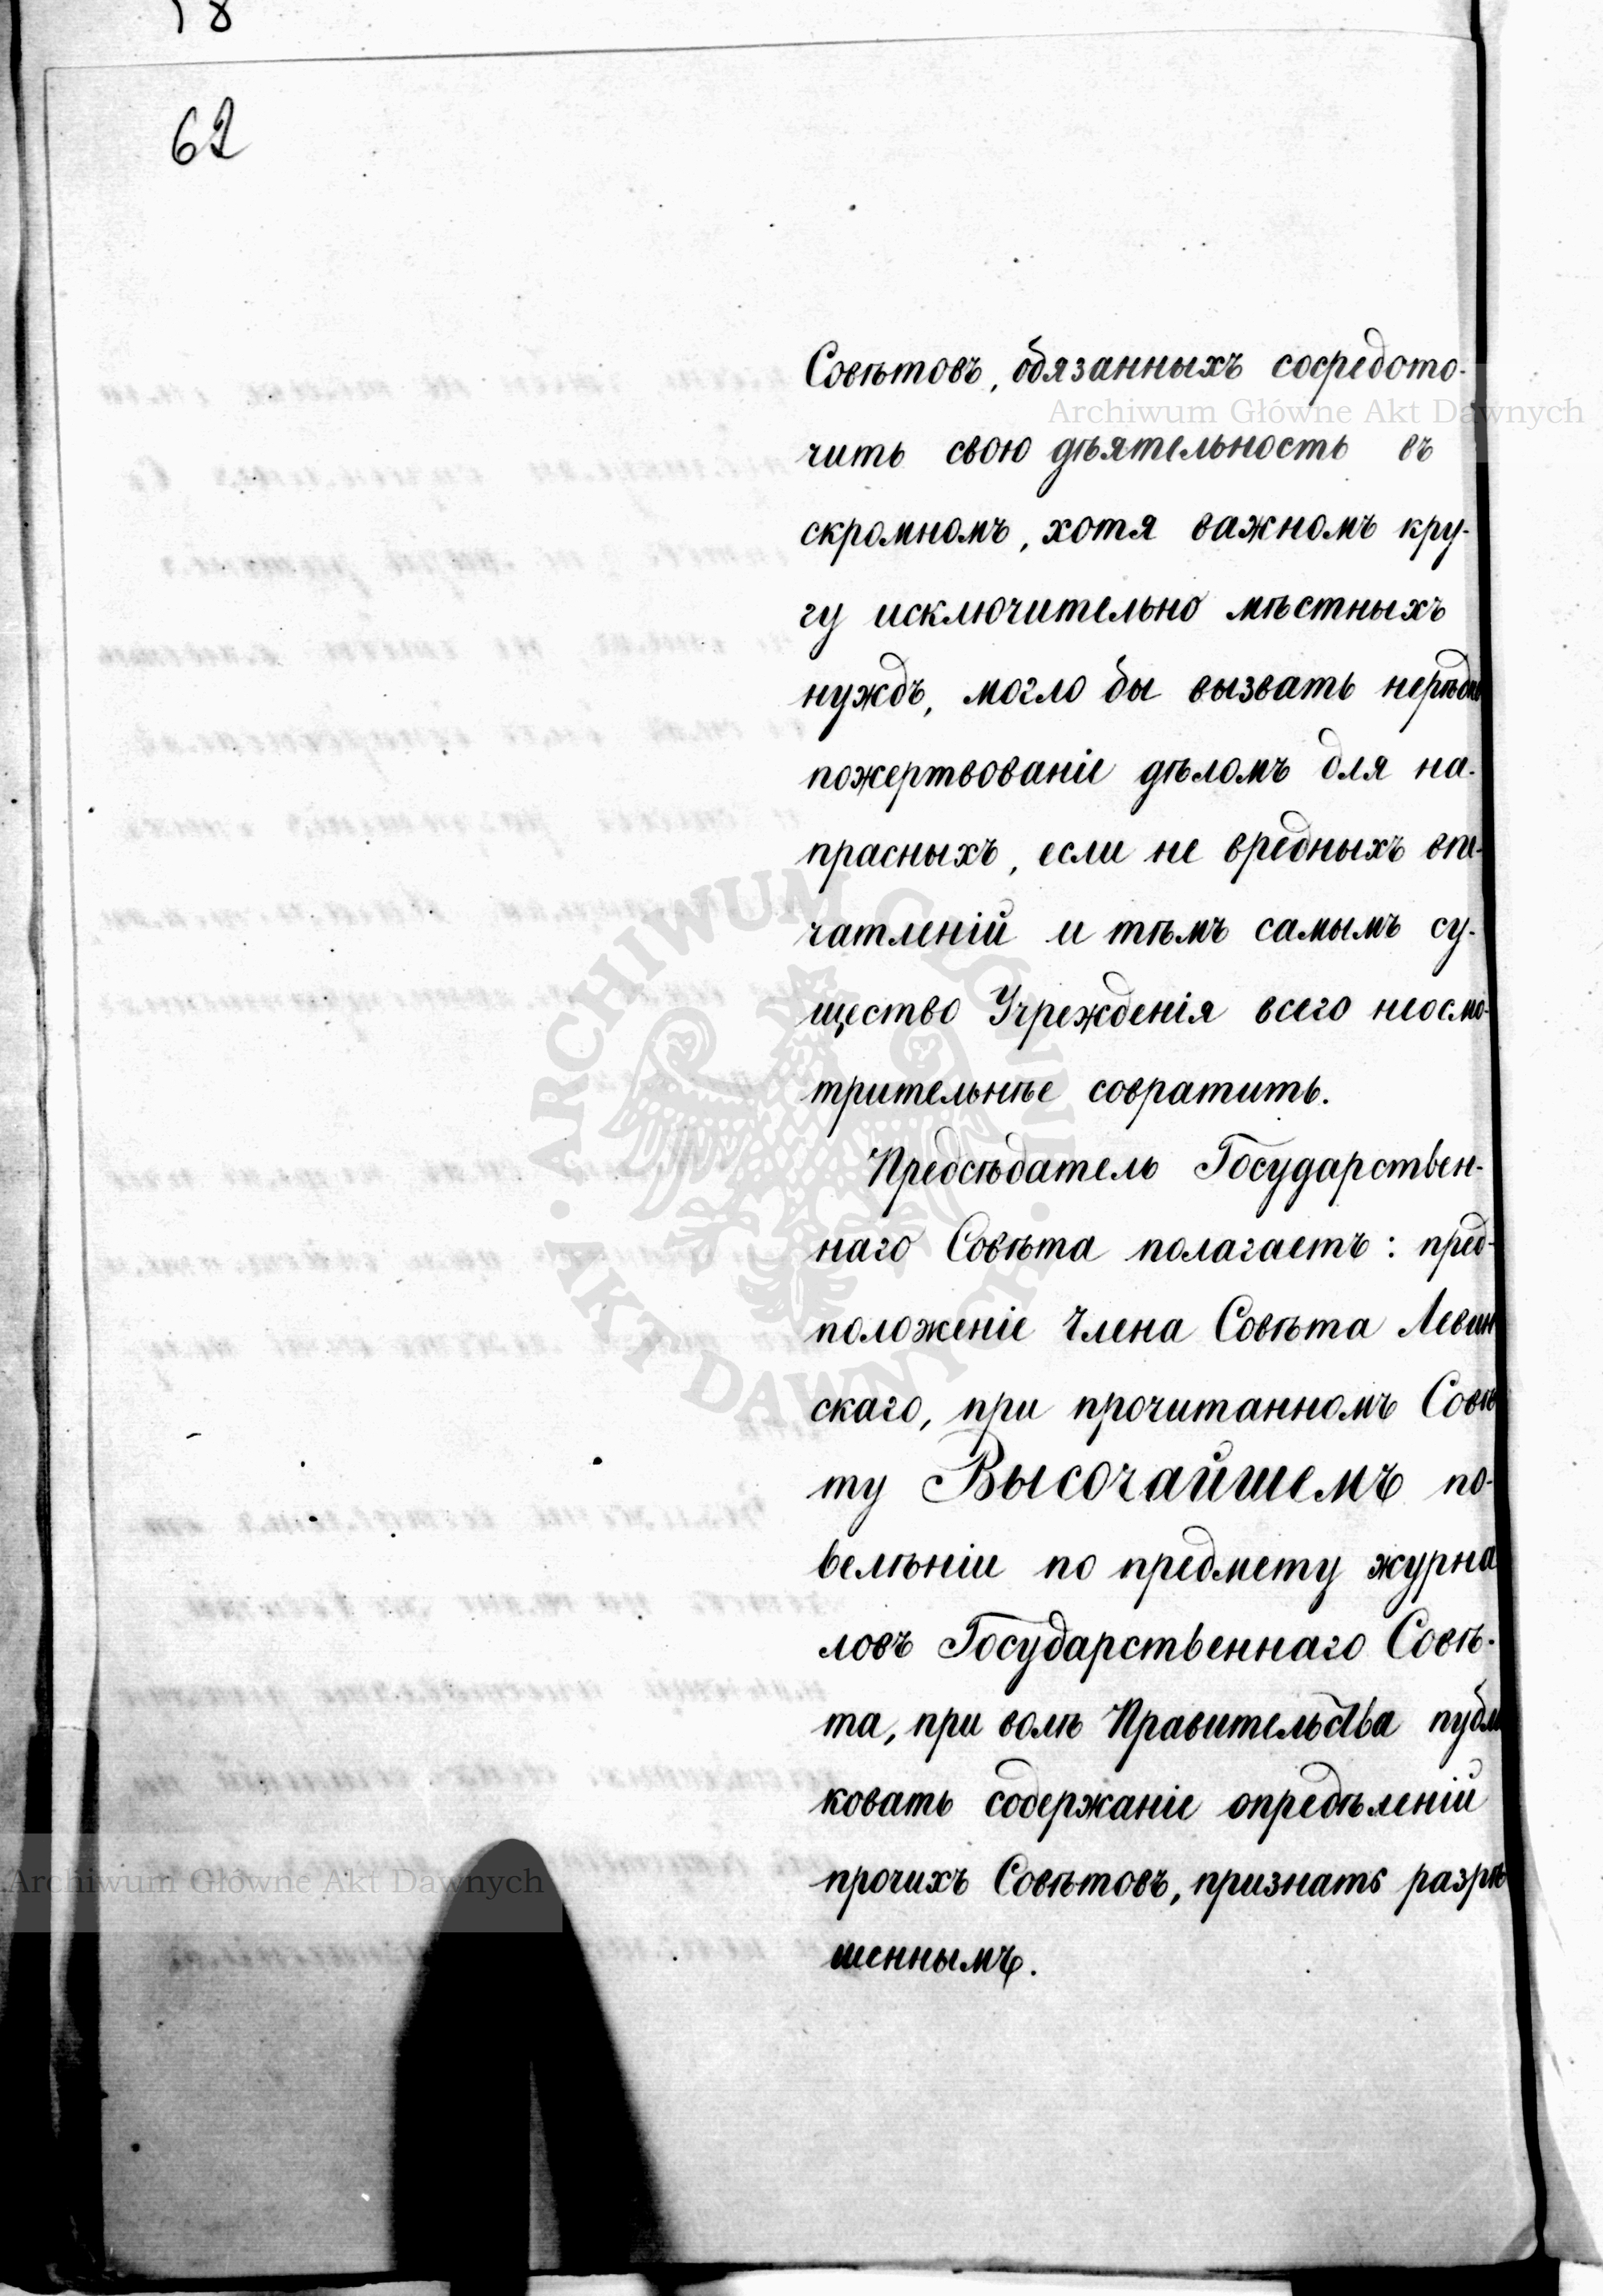 18
62
Совѣтовъ, обязанныхъ сосредото-
чить свою дѣятельность въ
скромномъ, хотя важномъ кру-
гу исключительно мѣстныхъ
нуждъ, могло бы вызвать нерѣдко
пожертвованіе дѣломъ для на-
прасныхъ, если не вредныхъ впе-
чатленій и тѣмъ самымъ су-
щество Учрежденія всего неосмо-
трительнѣе совратить.
Предсѣдатель Государствен-
наго Совѣта полагаетъ: пред-
положеніе Члена Совѣта Левин
скаго, при прочитанномъ Совѣ
ту Высочайшемъ по-
велѣніи по предмету журна
ловъ Государственнаго Совѣ-
та, при волѣ Правительства публи
ковать содержаніе опредѣленій
прочихъ Совѣтовъ, признать разрѣ
шеннымъ.
Archiwum Główne Akt Dawnych
ARCHIWUM GŁÓWNE AKT DAWNYCH
Archiwum Główne Akt Dawnych